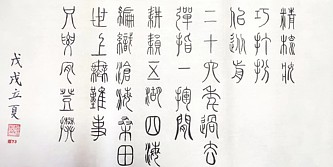 精梳妝
巧打扮
二十六年過去
彈指一揮間
耕耘五湖四海
編織滄海桑田
世上無難事
只要肯登攀
戊戌立夏